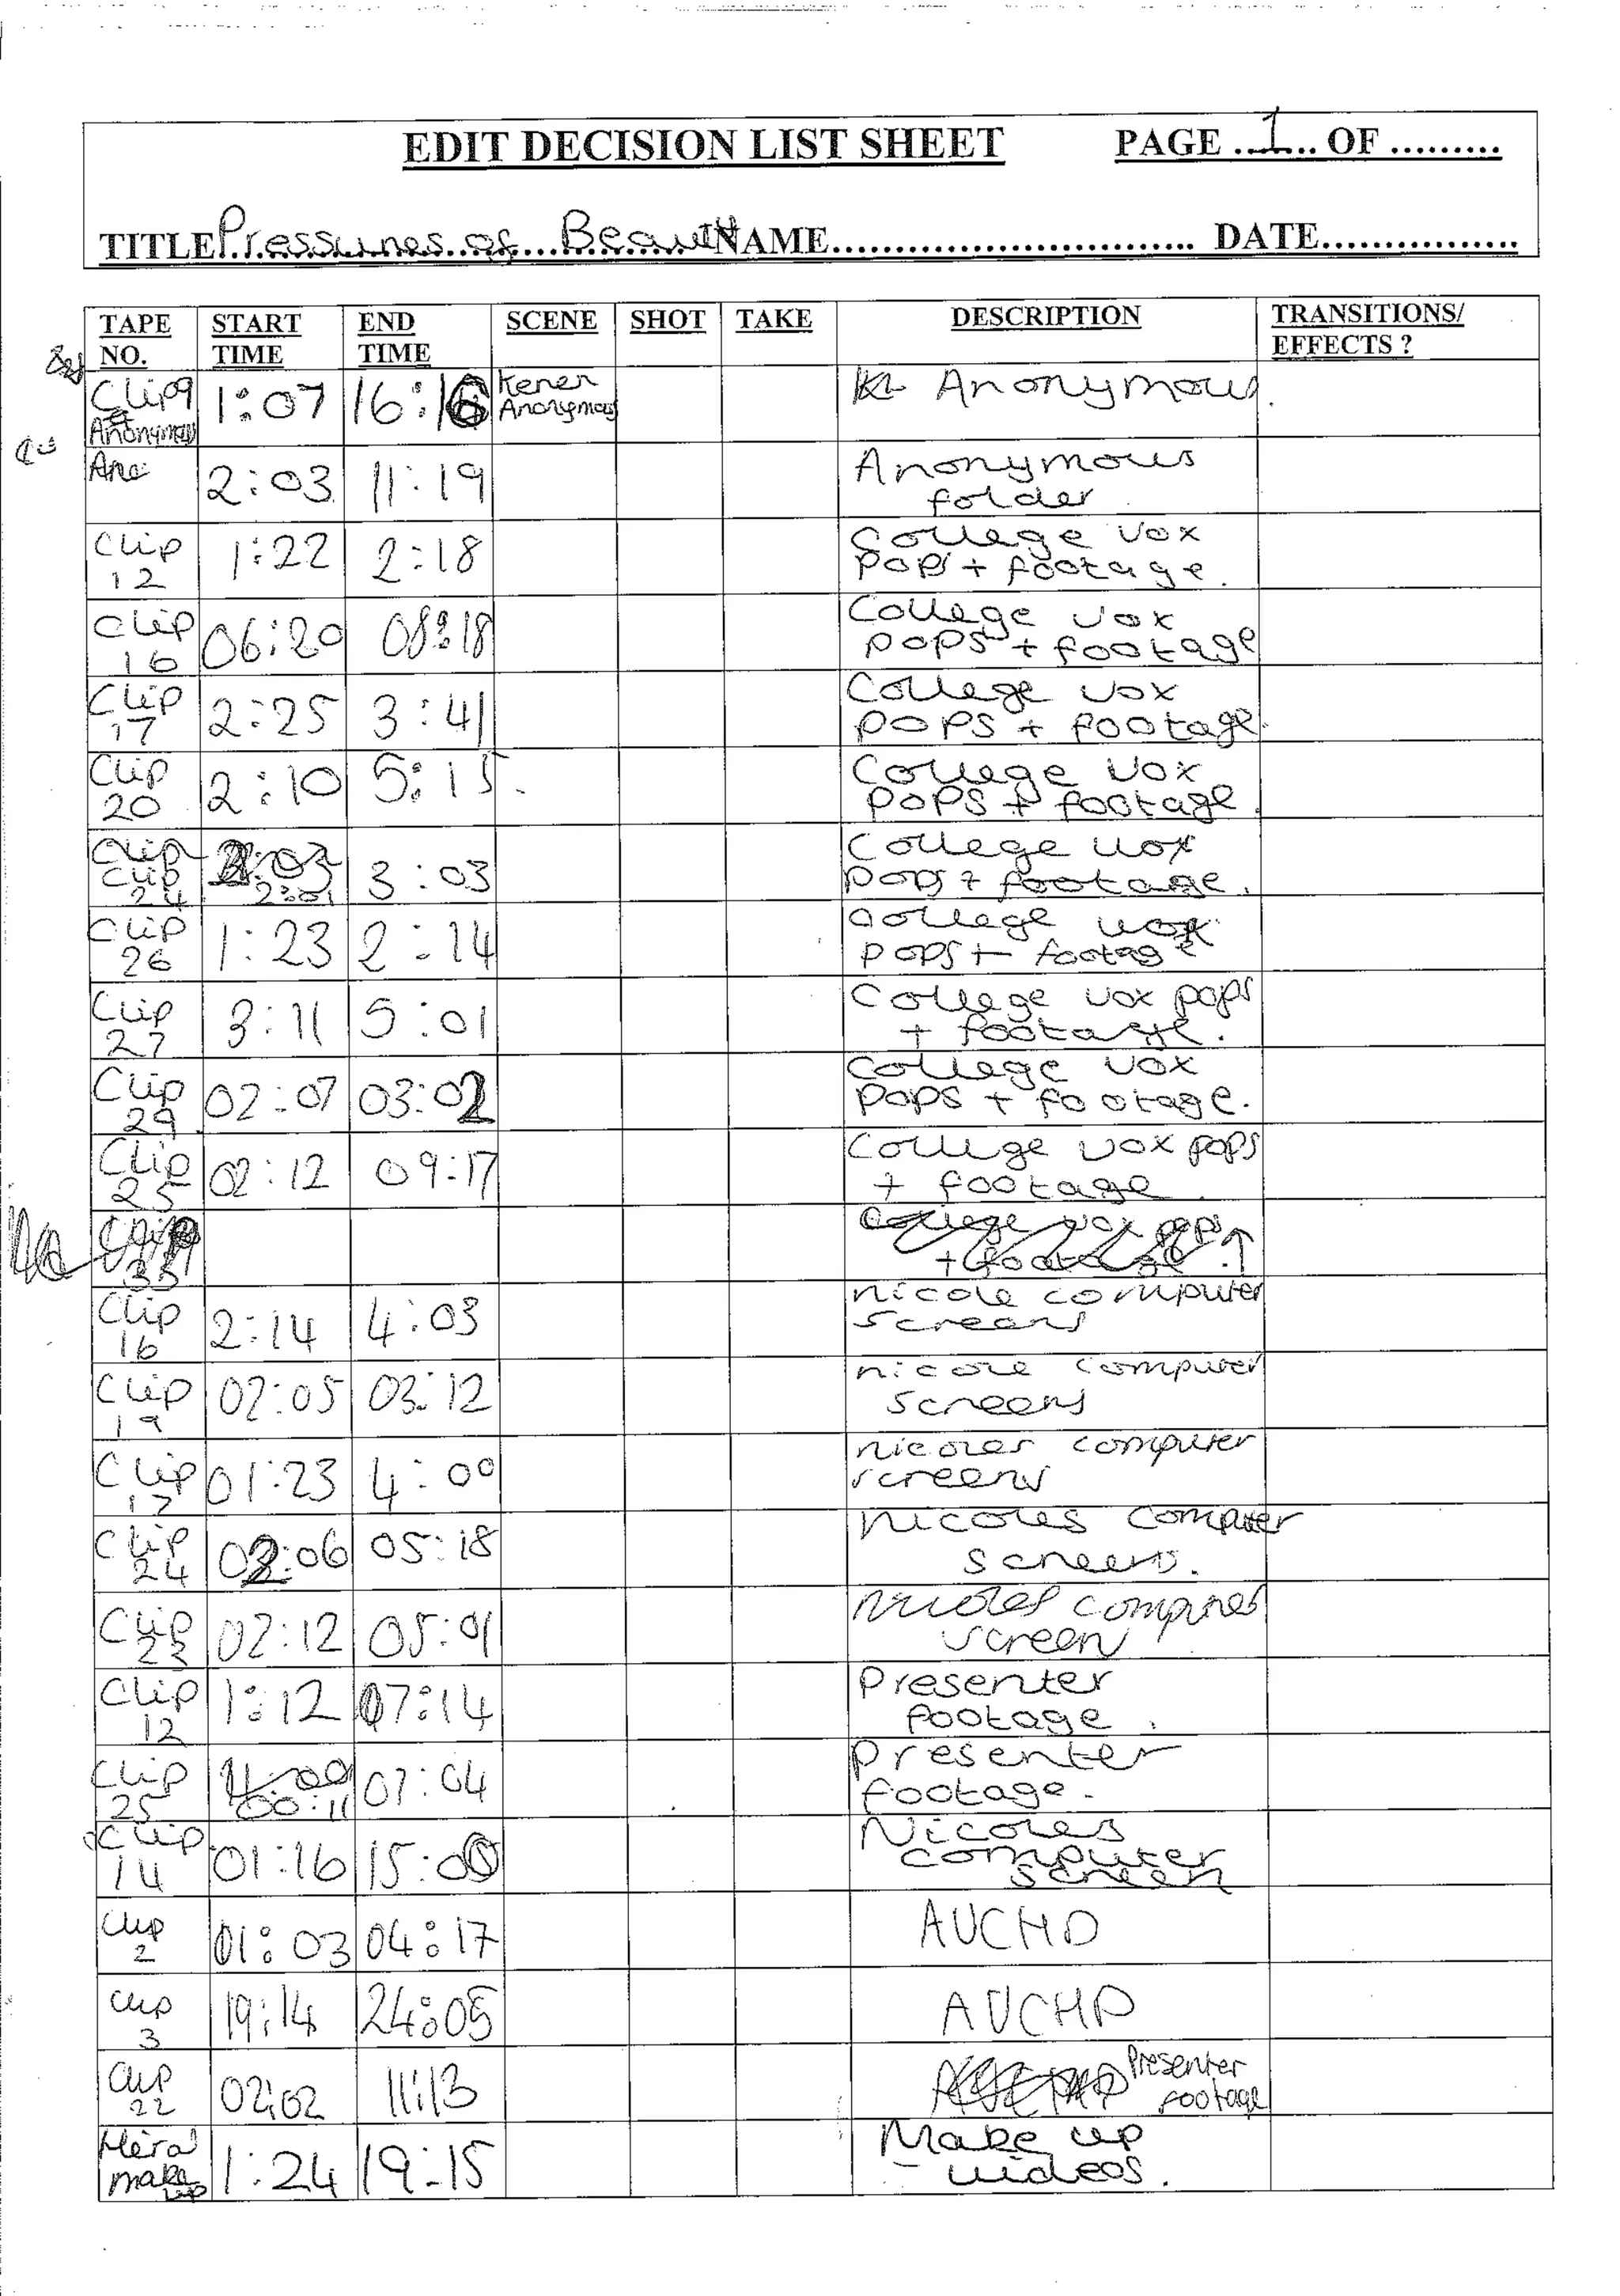 EDIT DECISION LIST SHEET PAGE ...1... OF .........
TITLE Pressures of Beauty NAME.............................. DATE................
TAPE NO. START TIME END TIME SCENE SHOT TAKE DESCRIPTION TRANSITIONS/ EFFECTS ?
Clip 9 Anonymous 1:07 16:16 Anonymous Anonymous.
Ano 2:03 11:19 Anonymous folder
Clip 12 1:22 2:18 College vox pops + footage.
Clip 16 06:20 08:18 College vox pops + footage
Clip 17 2:25 3:41 College vox pops + footage.
Clip 20 2:10 5:15. College vox pops + footage.
Clip 24 2:01 3:03 College vox pops + footage.
Clip 26 1:23 2:14 College vox pops + footage
Clip 27 3:11 5:01 College vox pops + footage.
Clip 29 02:07 03:02 College vox pops + footage.
Clip 25 02:12 09:17 College vox pops + footage
Clip 33 College vox pops + footage.
Clip 16 2:14 4:03 nicole computer screens
Clip 19 02:05 03:12 nicole computer screens
Clip 17 01:23 4:00 nicoles computer screens
Clip 24 02:06 05:18 Nicoles computer screens.
Clip 23 02:12 05:01 Nicoles computer screen
Clip 12 1:12 07:14 Presenter footage.
Clip 25 00:11 07:04 Presenter footage.
Clip 14 01:16 15:00 Nicoles computer screen
Clip 2 01:03 04:17 AUCHD
Clip 3 19:14 24:05 AVCHD
Clip 22 02:02 11:13 Presenter footage
make up 1:24 19:15 Make up videos.